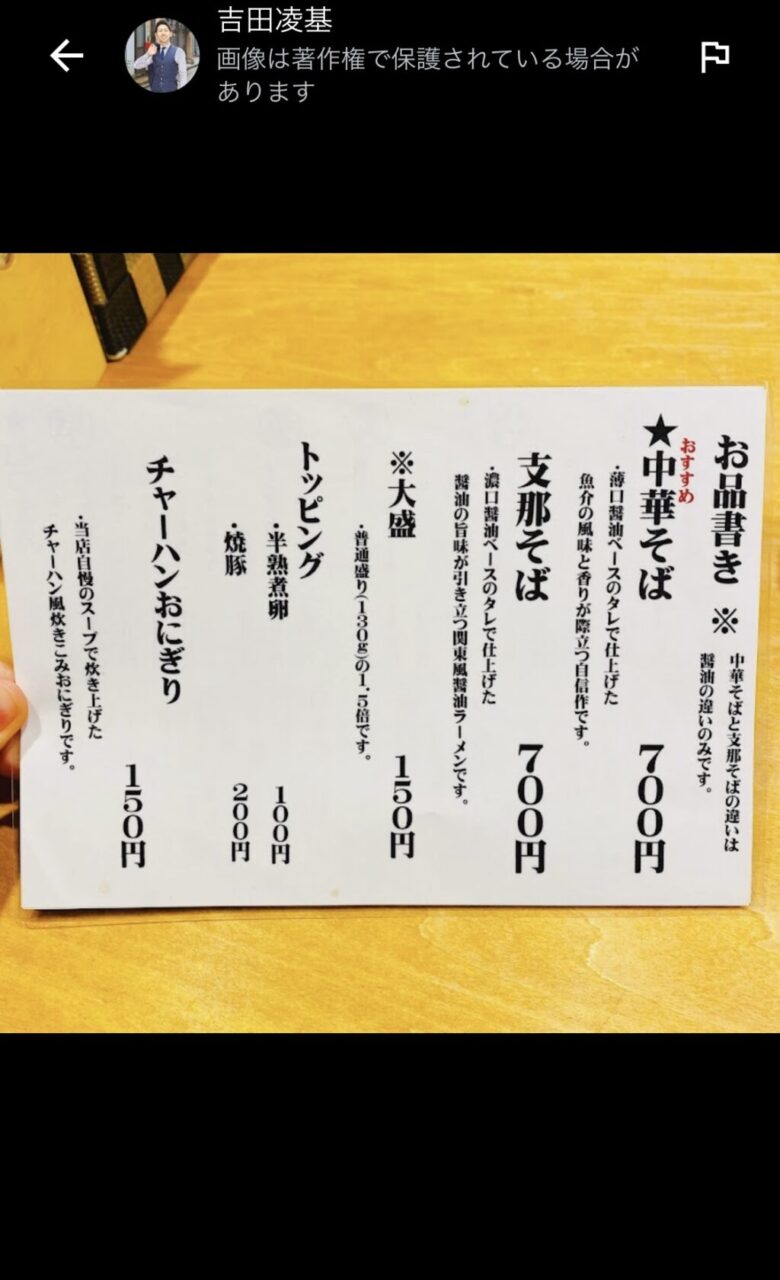 吉田凌基
画像は著作権で保護されている場合が
あります
お品書き ※
中華そばと支那そばの違いは
醤油の違いのみです。
おすすめ
★中華そば 700円
・薄口醤油ベースのタレで仕上げた
魚介の風味と香りが際立つ自信作です。
支那そば 700円
・濃口醤油ベースのタレで仕上げた
醤油の旨味が引き立つ関東風醤油ラーメンです。
※大盛 150円
・普通盛り(130g)の1.5倍です。
トッピング
・半熟煮卵 100円
・焼豚 200円
チャーハンおにぎり 150円
・当店自慢のスープで炊き上げた
チャーハン風炊きこみおにぎりです。